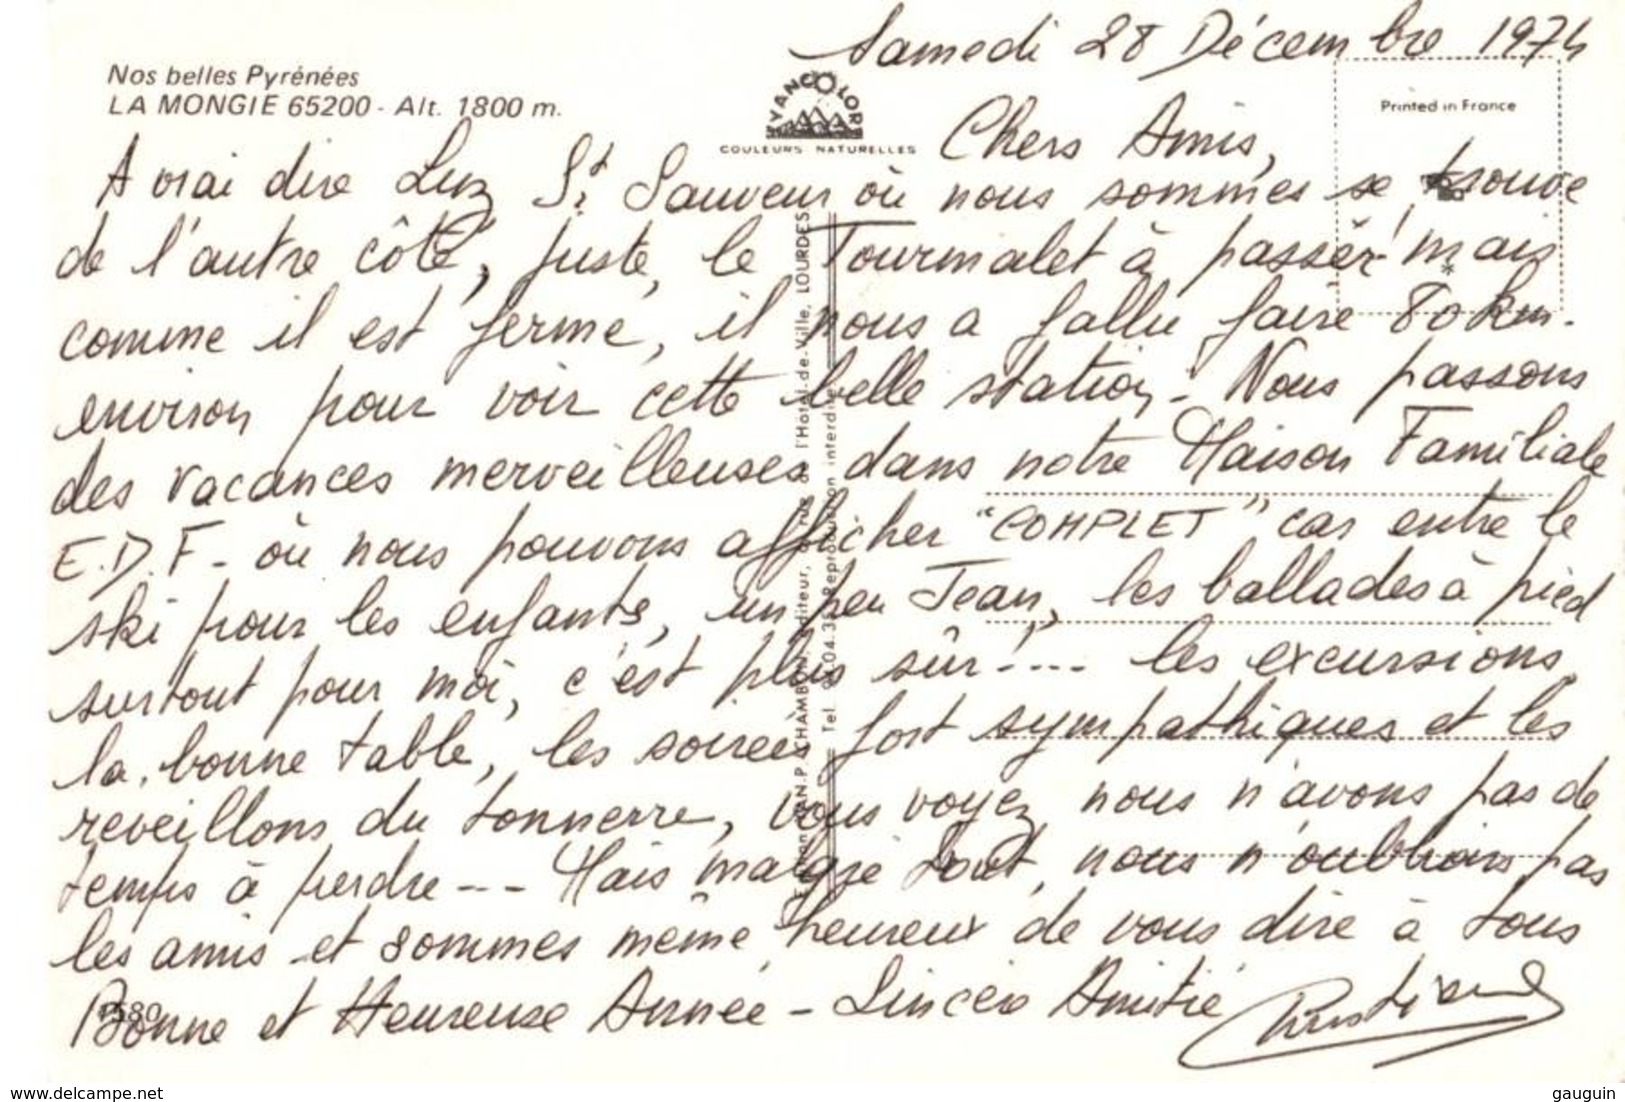 Samedi 28 Décembre 1974
Nos belles Pyrénées
LA MONGIE 65200 - Alt. 1800 m.
YVANCOLOR
COULEURS NATURELLES
Printed in France
Chers Amis,
A vrai dire Luz St Sauveur où nous sommes se trouve
de l'autre côté, juste, le Tourmalet à passer! mais
comme il est fermé, il nous a fallu faire 80 km.
environ pour voir cette belle station. Nous passons
des vacances merveilleuses dans notre Maison Familiale
E.D.F. où nous pouvons afficher "COMPLET" car entre le
ski pour les enfants, un peu Jean, les ballades à pied
surtout pour moi, c'est plus sûr!.... les excursions,
la bonne table, les soirées fort sympathiques et les
reveillons du tonnerre, vous voyez nous n'avons pas de
temps à perdre --- Mais malgré tout, nous n'oublions pas
les amis et sommes même heureux de vous dire à tous
Bonne et Heureuse Année - Sincère Amitié
Christiane
580
l'Hôtel-de-Ville, LOURDES
Reproduction interdite
Tel.
delcampe.net
gauguin